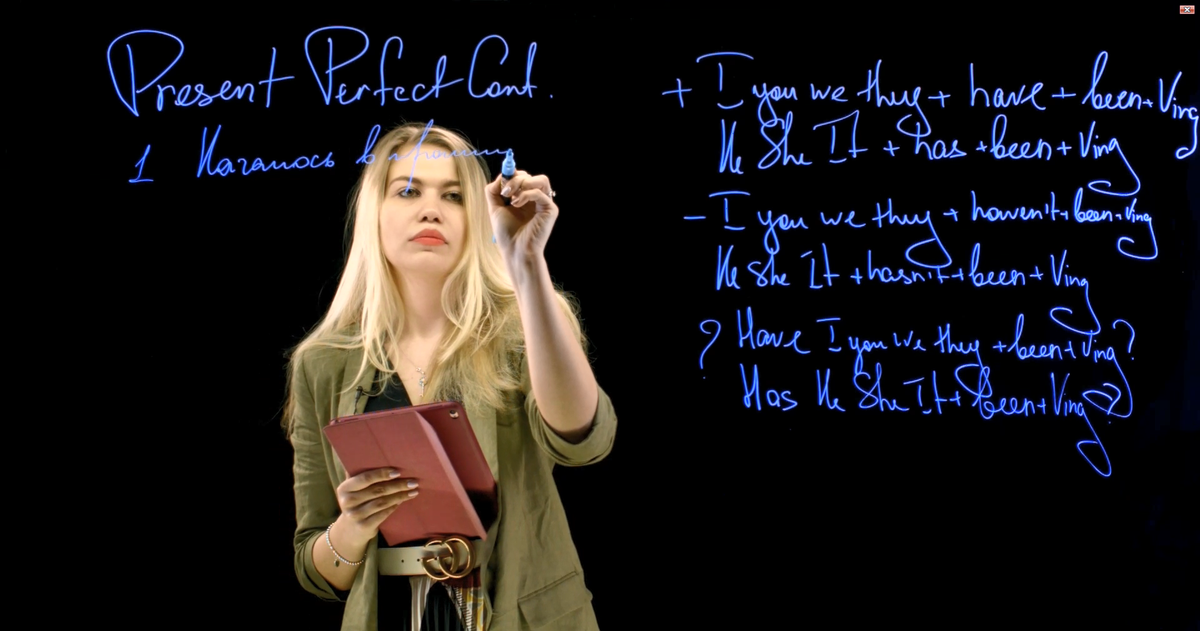 Present Perfect Cont.
1 Началось в прошлом
+ I you we they + have + been + Ving
He She It + has + been + Ving
- I you we they + haven't + been + Ving
He She It + hasn't + been + Ving
? Have I you we they + been + Ving?
Has He She It + been + Ving?